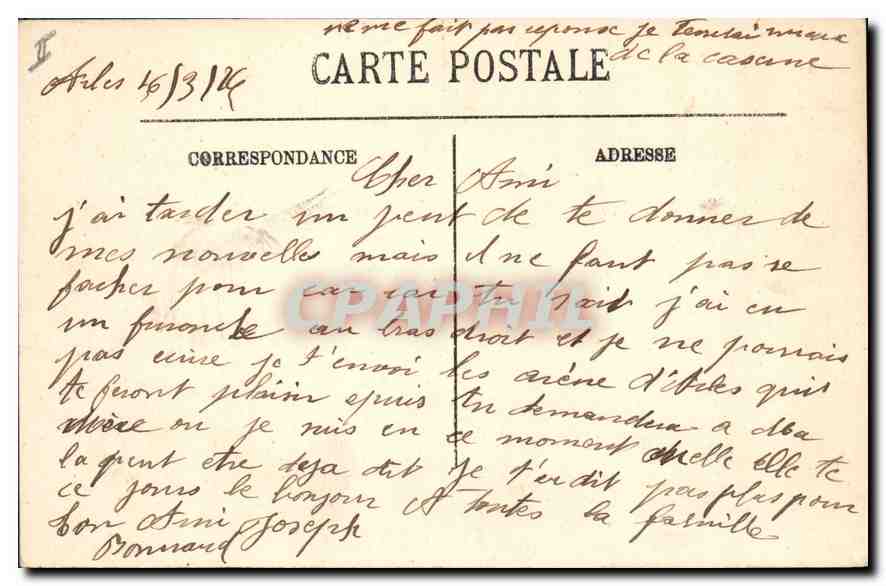 II
ne me fait pas reponse je tendai mieux
de la caserne
CARTE POSTALE
Arles 16/3/26
CORRESPONDANCE
ADRESSE
Cher Ami
j'ai tarder un peut de te donner de
mes nouvelles mais il ne faut pas se
facher pour car tu sait j'ai eu
un furoncle au bras droit et je ne pouvais
pas ecrire je t'envoi les arène d'Arles qui
te feront plaisir epuis tu demandera a Ma
Mère ou je suis en ce moment elle te
la peut etre deja dit je t'en dit pas plus pour
ce jours le bonjour A toutes la famille
ton Ami Joseph
Bonnard
CPAPHIL